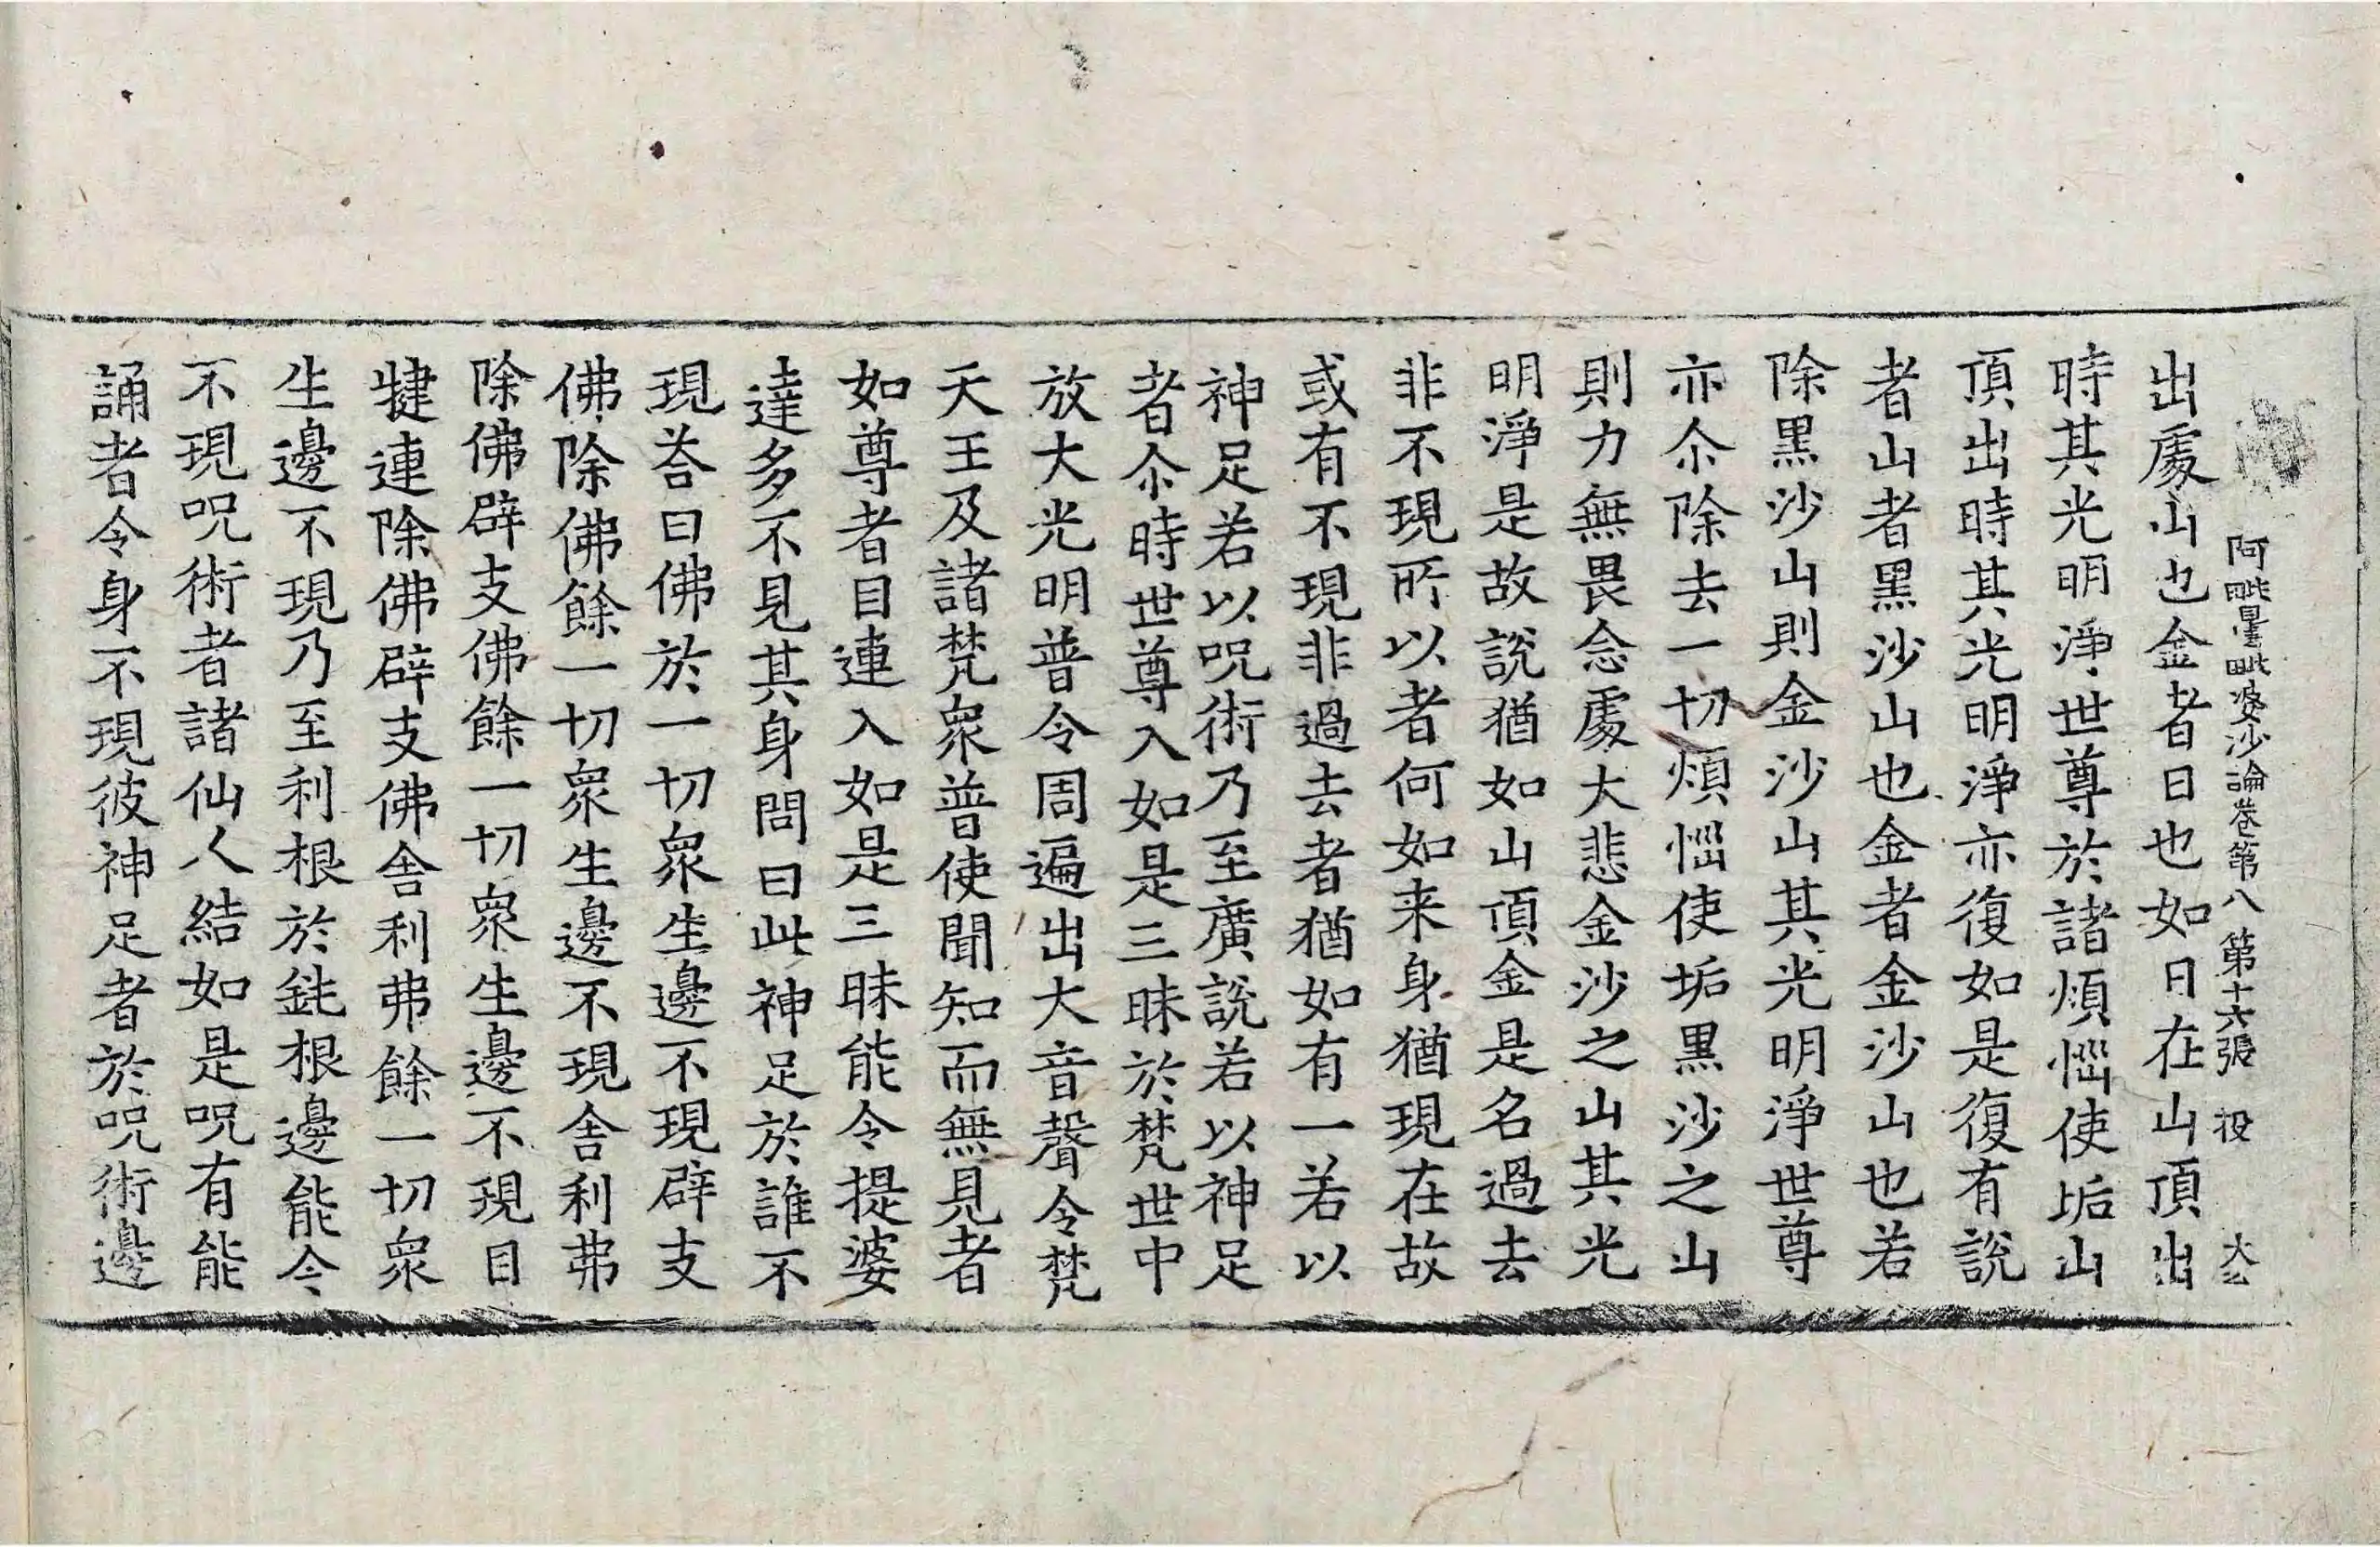 阿毗曇毗婆沙論卷第八 第十六張 投 大玄
出處山也金者日也如日在山頂出
時其光明淨世尊於諸煩惱使垢山
頂出時其光明淨亦復如是復有說
者山者黑沙山也金者金沙山也若
除黑沙山則金沙山其光明淨世尊
亦尒除去一切煩惱使垢黑沙之山
則力無畏念處大悲金沙之山其光
明淨是故說猶如山頂金是名過去
非不現所以者何如来身猶現在故
或有不現非過去者猶如有一若以
神足若以呪術乃至廣說若以神足
者尒時世尊入如是三昧於梵世中
放大光明普令周遍出大音聲令梵
天王及諸梵衆普使聞知而無見者
如尊者目連入如是三昧能令提婆
達多不見其身問曰此神足於誰不
現荅曰佛於一切衆生邊不現辟支
佛除佛餘一切衆生邊不現舍利弗
除佛辟支佛餘一切衆生邊不現目
揵連除佛辟支佛舍利弗餘一切衆
生邊不現乃至利根於鈍根邊能令
不現呪術者諸仙人結如是呪有能
誦者令身不現彼神足者於呪術邊